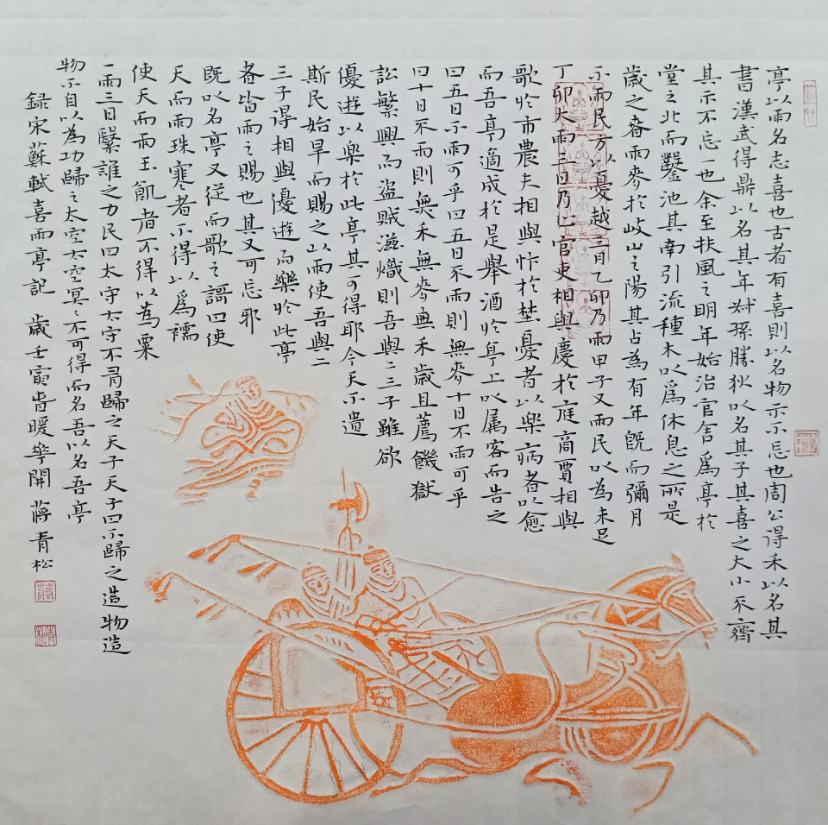 亭以雨名志喜也古者有喜則以名物示不忘也周公得禾以名其
書漢武得鼎以名其年叔孫勝狄以名其子其喜之大小不齊
其示不忘一也余至扶風之明年始治官舍爲亭於
堂之北而鑿池其南引流種木以爲休息之所是
歲之春雨麥於岐山之陽其占為有年既而彌月
不雨民方以憂越三月乙卯乃雨甲子又雨民以為未足
丁卯大雨三日乃止官吏相與慶於庭商賈相與
歌於市農夫相與忭於埜憂者以樂病者以愈
而吾亭適成於是舉酒於亭上以属客而告之
曰五日不雨可乎曰五日不雨則無麥十日不雨可乎
曰十日不雨則無禾無麥無禾歲且薦饑獄
訟繁興而盜賊滋熾則吾與二三子雖欲
優遊以樂於此亭其可得耶今天不遺
斯民始旱而賜之以雨使吾與二
三子得相與優遊而樂於此亭
者皆雨之賜也其又可忘耶
既以名亭又從而歌之謌曰使
天而雨珠寒者不得以爲襦
使天而雨玉飢者不得以為粟
一雨三日繄誰之力民曰太守太守不有歸之天子天子曰不歸之造物造
物不自以為功歸之太空太空冥〻不可得而名吾以名吾亭
録宋蘇軾喜雨亭記 歲壬寅旹暖華開 蔣青松